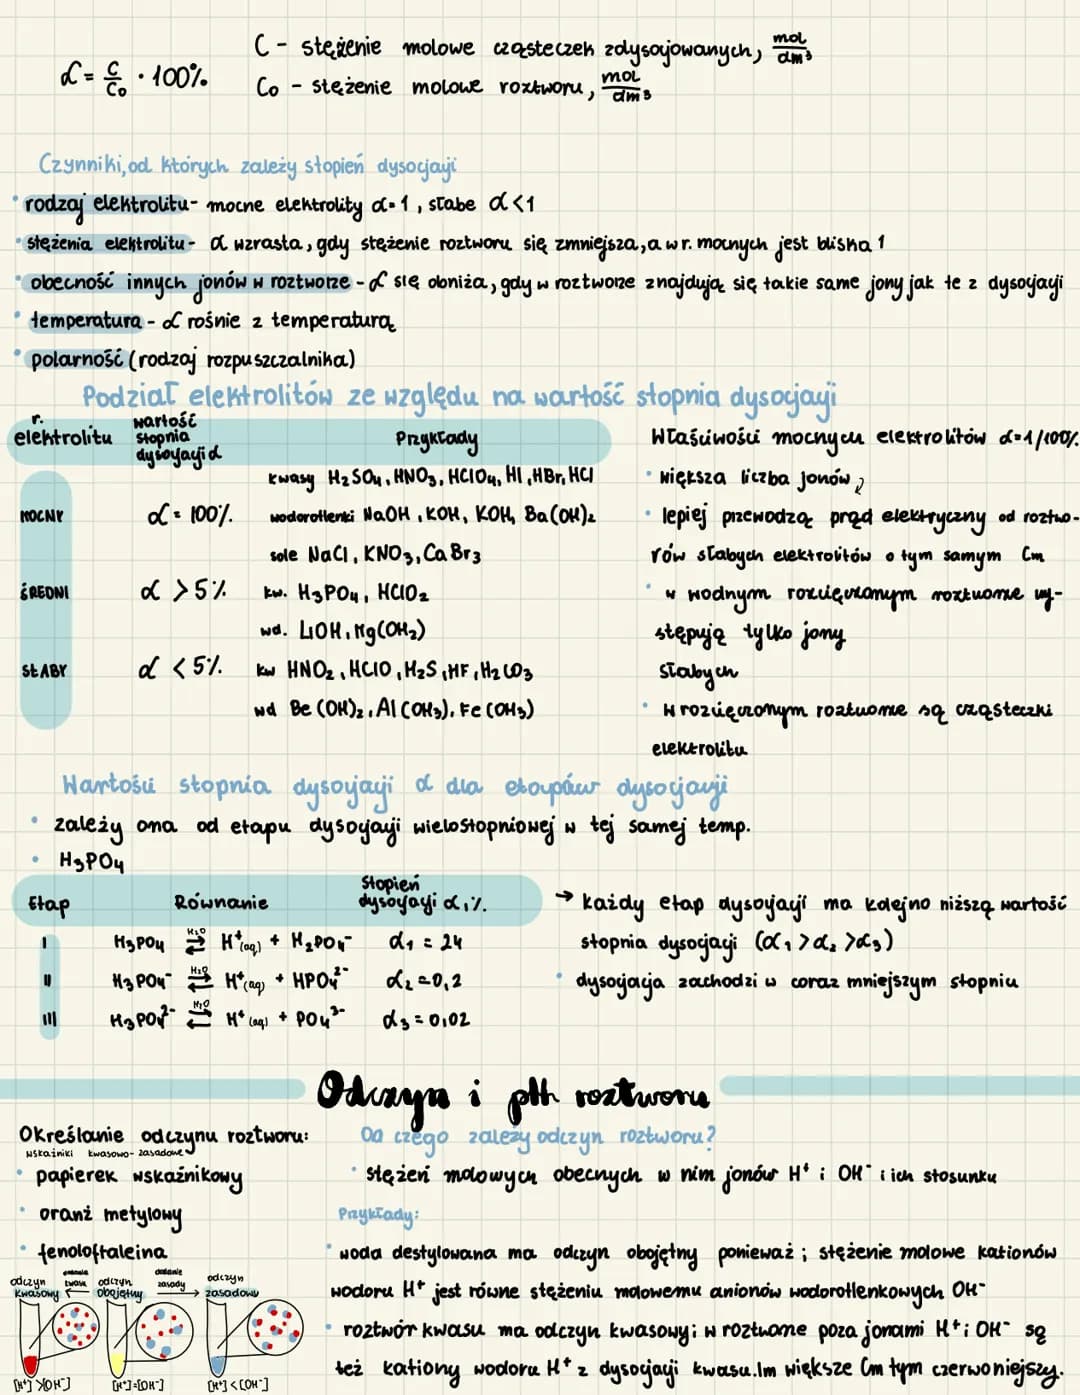 α = C/C₀ · 100%
C - stężenie molowe cząsteczek zdysocjowanych, mol/dm³
C₀ - stężenie molowe roztworu, mol/dm³
Czynniki, od których zależy stopień dysocjacji
• rodzaj elektrolitu - mocne elektrolity α=1, słabe α<1
• stężenia elektrolitu - α wzrasta, gdy stężenie roztworu się zmniejsza, a w r. mocnych jest bliska 1
• obecność innych jonów w roztworze - α się obniża, gdy w roztworze znajdują się takie same jony jak te z dysocjacji
• temperatura - α rośnie z temperaturą
• polarność (rodzaj rozpuszczalnika)
Podział elektrolitów ze względu na wartość stopnia dysocjacji
r. elektrolitu wartość stopnia dysocjacji α Przykłady
kwasy H₂SO₄, HNO₃, HClO₄, HI, HBr, HCl
MOCNY α = 100% wodorotlenki NaOH, KOH, KOH, Ba(OH)₂
sole NaCl, KNO₃, CaBr₃
ŚREDNI α > 5% kw. H₃PO₄, HClO₂
wd. LiOH, Mg(OH₂)
SŁABY α < 5% kw HNO₂, HClO, H₂S, HF, H₂CO₃
wd Be(OH)₂, Al(OH₃), Fe(OH₃)
Właściwości mocnych elektrolitów α=1/100%
• większa liczba jonów
• lepiej przewodzą prąd elektryczny od roztwo-
rów słabych elektrolitów o tym samym Cm
• w wodnym rozcieńczonym roztworze wy-
stępują tylko jony
słabych
• w rozcieńczonym roztworze są cząsteczki
elektrolitu
Wartości stopnia dysocjacji α dla etapów dysocjacji
• zależy ona od etapu dysocjacji wielostopniowej w tej samej temp.
• H₃PO₄
Etap Równanie Stopień dysocjacji α, %.
I H₃PO₄ ⇄ (H₂O) H⁺(aq) + H₂PO₄⁻ α₁ = 24
II H₃PO₄⁻ ⇄ (H₂O) H⁺(aq) + HPO₄²⁻ α₂ = 0,2
III H₃PO₄²⁻ ⇄ (H₂O) H⁺(aq) + PO₄³⁻ α₃ = 0,02
→ każdy etap dysocjacji ma kolejno niższą wartość
stopnia dysocjacji (α₁ > α₂ > α₃)
• dysocjacja zachodzi w coraz mniejszym stopniu
Odczyn i pH roztworu
Określanie odczynu roztworu:
wskaźniki kwasowo-zasadowe
• papierek wskaźnikowy
• oranż metylowy
• fenoloftaleina
odczyn kwasowy ← kwasu odczyn obojętny dodanie zasady → odczyn zasadowy
[H⁺] > [OH⁻] [H⁺] = [OH⁻] [H⁺] < [OH⁻]
Od czego zależy odczyn roztworu?
• stężeń molowych obecnych w nim jonów H⁺ i OH⁻ i ich stosunku
Przykłady:
• woda destylowana ma odczyn obojętny ponieważ; stężenie molowe kationów
wodoru H⁺ jest równe stężeniu molowemu anionów wodorotlenkowych OH⁻
• roztwór kwasu ma odczyn kwasowy; w roztworze poza jonami H⁺ i OH⁻ są
też kationy wodoru H⁺ z dysocjacji kwasu. Im większe Cm tym czerwoniejszy.